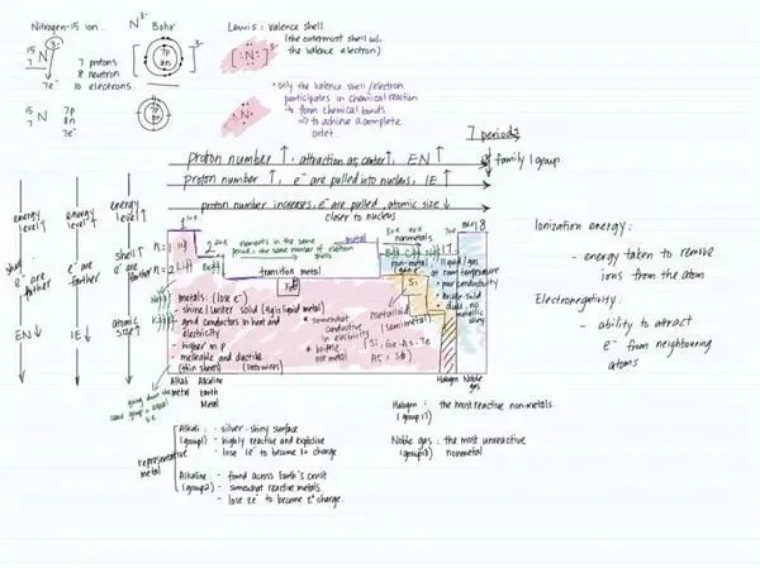 Nitrogen-15 ion
N³⁻ Bohr
Lewis : valence shell
(the outermost shell w/
the valence electron)
15
7 N 3-
7e⁻
7 protons
8 neutron
10 electrons
[ 7p 8n ] 3-
[ :N: ] 3-
15
7 N
7p
8n
7e⁻
·N·
• only the valence shell/electron
participates in chemical reaction
→ form chemical bonds
⇒ to achieve a complete
octet.
7 periods
family/group
proton number ↑, attraction at center ↑, EN ↑
proton number ↑, e⁻ are pulled into nucleus, IE ↑
proton number increases, e⁻ are pulled, atomic size ↓
closer to nucleus
energy level ↑
shell
e⁻ are farther
EN ↓
energy level ↑
e⁻ are farther
IE ↓
energy level ↑
shell ↑
e⁻ are farther
atomic size ↑
n=1
n=2
elements in the same
period : the same number of electron
shells
metal
nonmetals
17
18
transition metal
metals: (lose e⁻)
- shiny/luster solid (Hg is liquid metal)
- good conductors in heat and
electricity
- higher m.p
- malleable and ductile
(thin sheets) (into wires)
• somewhat
conductive
in electricity
• brittle
not metal
metalloid
(semimetal)
(Si, Ge, As, Te
Si
non-metal
(gain e⁻)
• liquid/gas
at room temperature
• poor conductivity
• brittle solid
• dull, no
metallic
shiny
Alkali
metal
Alkaline
Earth
Metal
Halogen
Noble
gas
going down the
same group
representative
metal
Alkali : - silver-shiny surface
(group1) - highly reactive and explosive
- lose 1e⁻ to become 1+ charge
Alkaline : - found across Earth's crust
(group2) - somewhat reactive metals
- lose 2e⁻ to become 2⁺ charge.
Halogen : the most reactive non-metals.
(group 17)
Noble gas : the most unreactive
(group18) nonmetal
Ionization energy :
- energy taken to remove
ions from the atom
Electronegativity :
- ability to attract
e⁻ from neighbouring
atoms